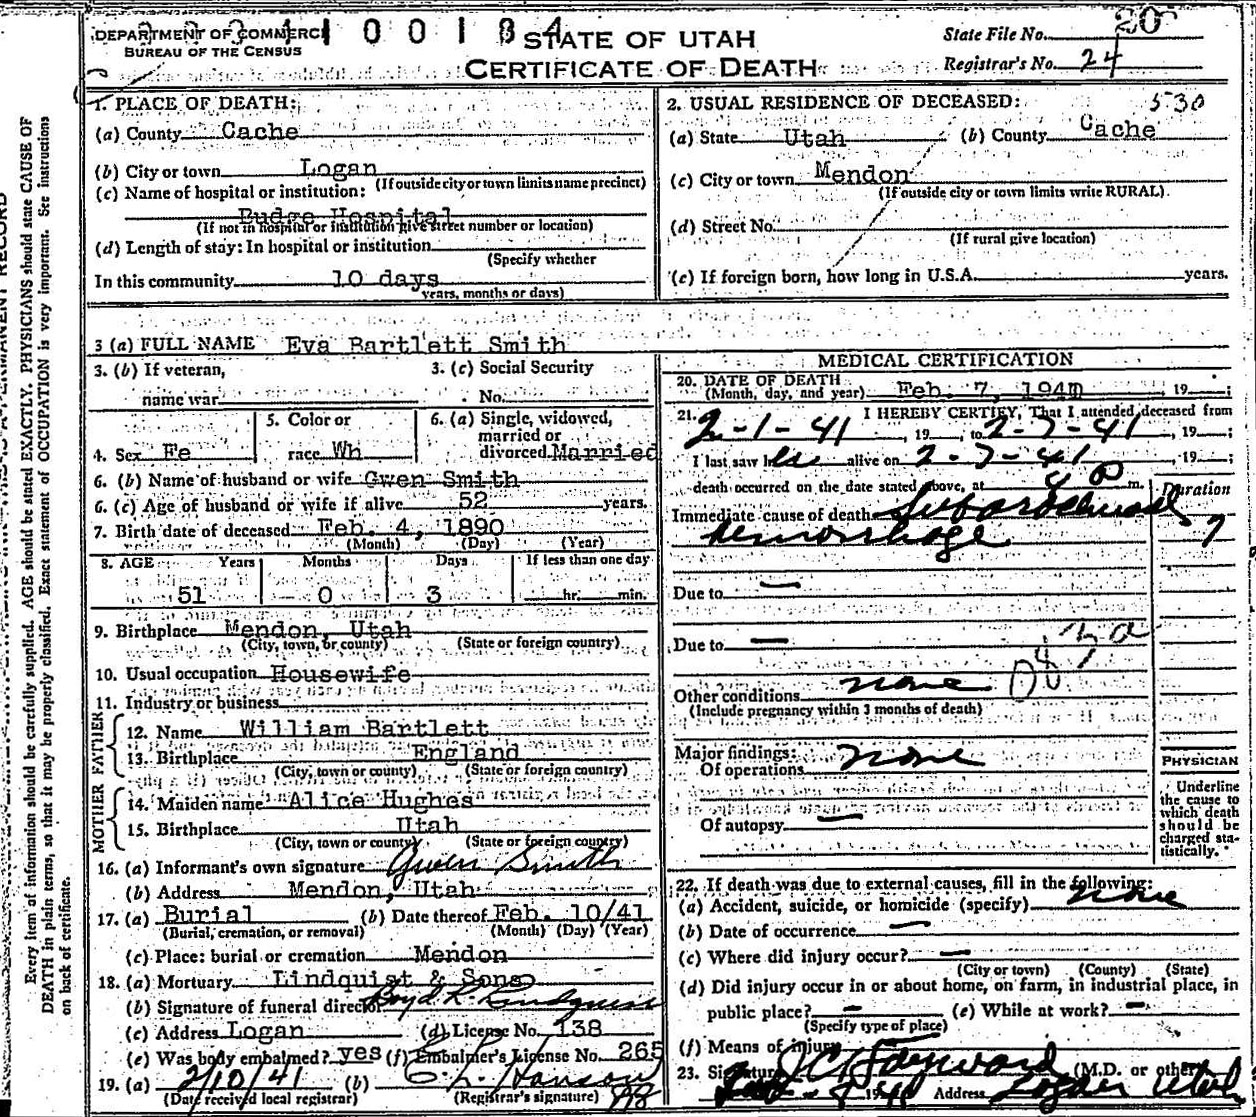 DEPARTMENT OF COMMERCE
BUREAU OF THE CENSUS
STATE OF UTAH
CERTIFICATE OF DEATH
State File No. 20
Registrar's No. 24
1. PLACE OF DEATH:
(a) County Cache
(b) City or town Logan
(If outside city or town limits name precinct)
(c) Name of hospital or institution:
Budge Hospital
(If not in hospital or institution give street number or location)
(d) Length of stay: In hospital or institution
(Specify whether
In this community 10 days
years, months or days)
2. USUAL RESIDENCE OF DECEASED: 530
(a) State Utah (b) County Cache
(c) City or town Mendon
(If outside city or town limits write RURAL)
(d) Street No.
(If rural give location)
(e) If foreign born, how long in U.S.A. years.
3 (a) FULL NAME Eva Bartlett Smith
3. (b) If veteran,
name war
3. (c) Social Security
No.
4. Sex Fe
5. Color or
race Wh
6. (a) Single, widowed,
married or
divorced Married
6. (b) Name of husband or wife Gwen Smith
6. (c) Age of husband or wife if alive 52 years.
7. Birth date of deceased Feb. 4, 1890
(Month) (Day) (Year)
8. AGE Years Months Days If less than one day
51 0 3 hr. min.
9. Birthplace Mendon, Utah
(City, town, or county) (State or foreign country)
10. Usual occupation Housewife
11. Industry or business
FATHER
12. Name William Bartlett
13. Birthplace England
(City, town or county) (State or foreign country)
MOTHER
14. Maiden name Alice Hughes
15. Birthplace Utah
(City, town or county) (State or foreign country)
16. (a) Informant's own signature Gwen Smith
(b) Address Mendon, Utah
17. (a) Burial (b) Date thereof Feb. 10/41
(Burial, cremation, or removal) (Month) (Day) (Year)
(c) Place: burial or cremation Mendon
18. (a) Mortuary Lindquist & Sons
(b) Signature of funeral director Boyd R. Lindquist
(c) Address Logan (d) License No. 138
(e) Was body embalmed? yes (f) Embalmer's License No. 265
19. (a) 2/10/41 (b) C. L. Hanson
(Date received local registrar) (Registrar's signature)
MEDICAL CERTIFICATION
20. DATE OF DEATH
(Month, day, and year) Feb. 7, 1941 19 ;
21. I HEREBY CERTIFY, That I attended deceased from
2-1-41, 19 , to 2-7-41, 19 ;
I last saw her alive on 2-7-41, 19 ;
death occurred on the date stated above, at 4 P m.
Duration
Immediate cause of death Subarachnoid
hemorrhage 7
Due to —
Due to —
Other conditions none
(Include pregnancy within 3 months of death)
Major findings:
Of operations none
Of autopsy —
PHYSICIAN
Underline
the cause to
which death
should be
charged sta-
tistically.
22. If death was due to external causes, fill in the following:
(a) Accident, suicide, or homicide (specify) none
(b) Date of occurrence —
(c) Where did injury occur? —
(City or town) (County) (State)
(d) Did injury occur in or about home, on farm, in industrial place, in
public place? — (e) While at work? —
(Specify type of place)
(f) Means of injury
23. Signature J C Hayward (M.D. or other)
1941 Address Logan Utah
Every item of information should be carefully supplied. AGE should be stated EXACTLY. PHYSICIANS should state CAUSE OF
DEATH in plain terms, so that it may be properly classified. Exact statement of OCCUPATION is very important. See instructions
on back of certificate.